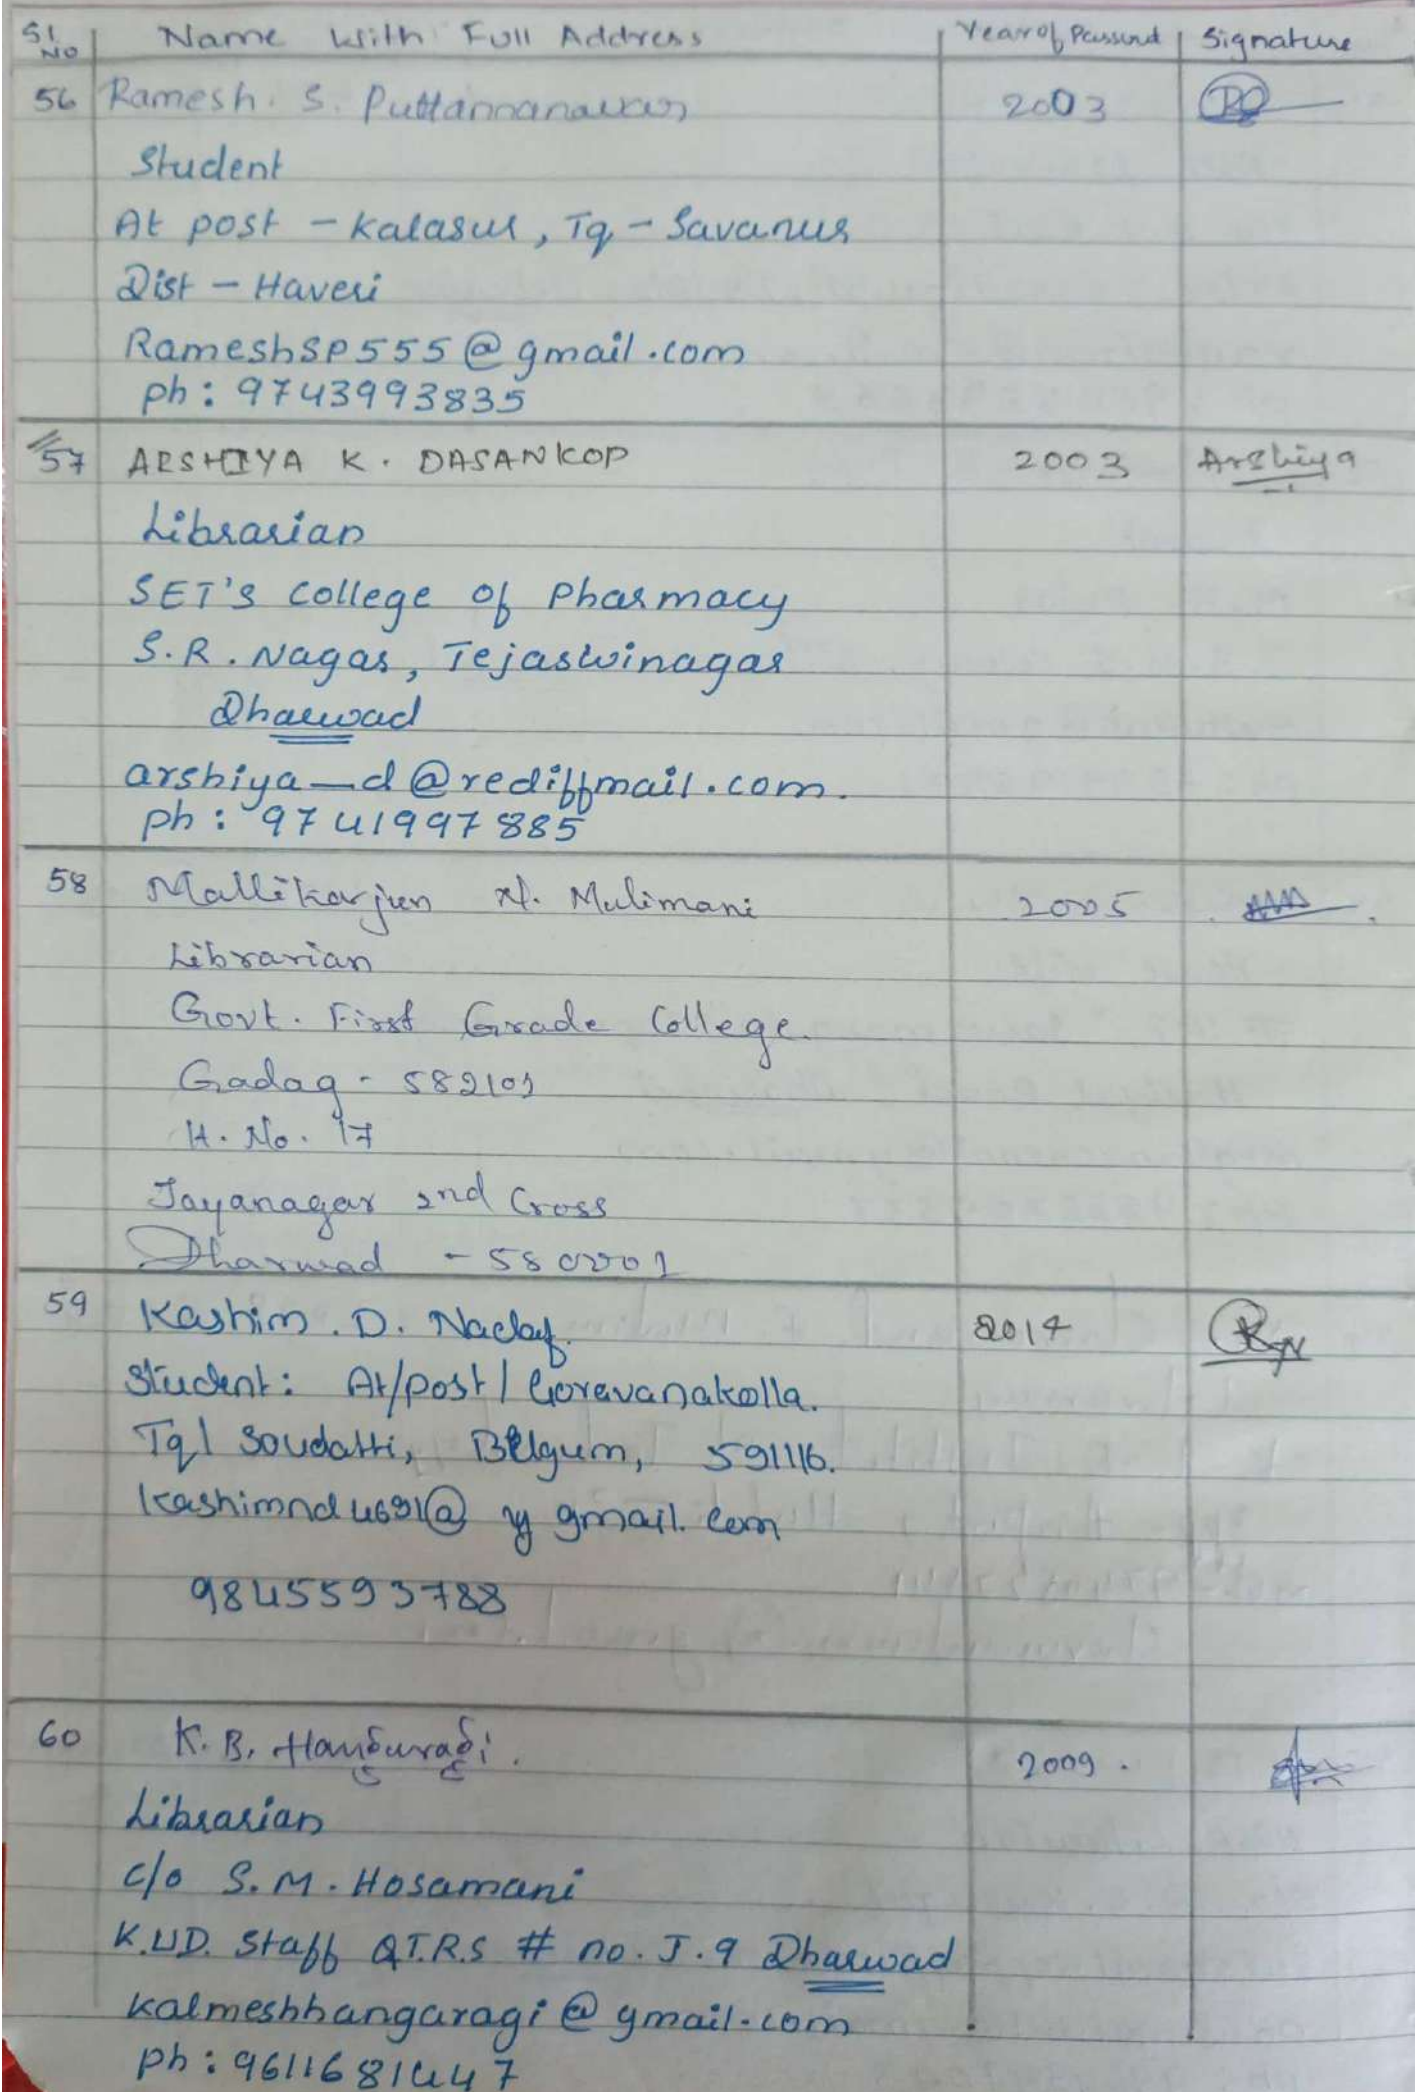 Sl No Name With Full Address Year of Passend Signature
56 Ramesh. S. Puttannanavar 2003
Student
At post - Kalasur, Tq - Savanur
Dist - Haveri
RameshSP555@gmail.com
Ph: 9743993835
57 ARSHIYA K. DASANKOP 2003 Arshiya
Librarian
SET'S College of Pharmacy
S.R. Nagar, Tejaswinagar
Dharwad
arshiya_d@rediffmail.com.
Ph: 9741997885
58 Mallikarjun N. Mulimani 2005
Librarian
Govt. First Grade College.
Gadag - 582101
H. No. 17
Jayanagar 2nd Cross
Dharwad - 580001
59 Kashim. D. Nadaf. 2014
Student: At/post/ Goravanakolla.
Tq/ Soudatti, Belgum, 591116.
gmail.com
9845593788
60 K. B. 2009.
Librarian
C/o S.M. Hosamani
K.U.D. Staff QT.R.S # no. J.9 Dharwad
kalmeshhangaragi@gmail.com
Ph: 9611681447